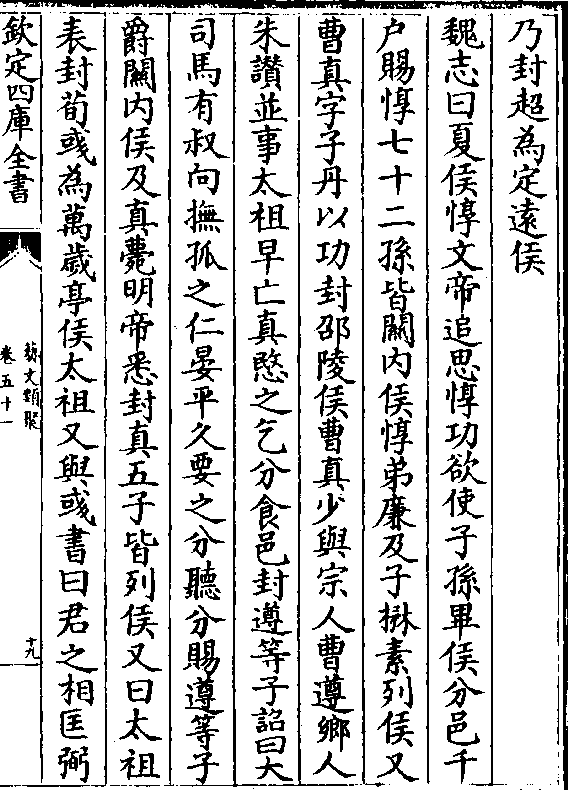 乃封超為定遠侯
魏志曰夏侯惇文帝追思惇功欲使子孫畢侯分邑千
户賜惇七十二孫皆關内侯惇弟廉及子楙素列侯又
曹真字子丹以功封邵陵侯曹真少與宗人曹遵鄉人
朱讚並事太祖早亡真愍之乞分食邑封遵等子詔曰大
司馬有叔向撫孤之仁晏平久要之分聽分賜遵等子
爵關内侯及真薨明帝悉封真五子皆列侯又曰太祖
表封荀彧為萬歲亭侯太祖又與彧書曰君之相匡弼
欽定四庫全書
藝文類聚
卷五十一
十九